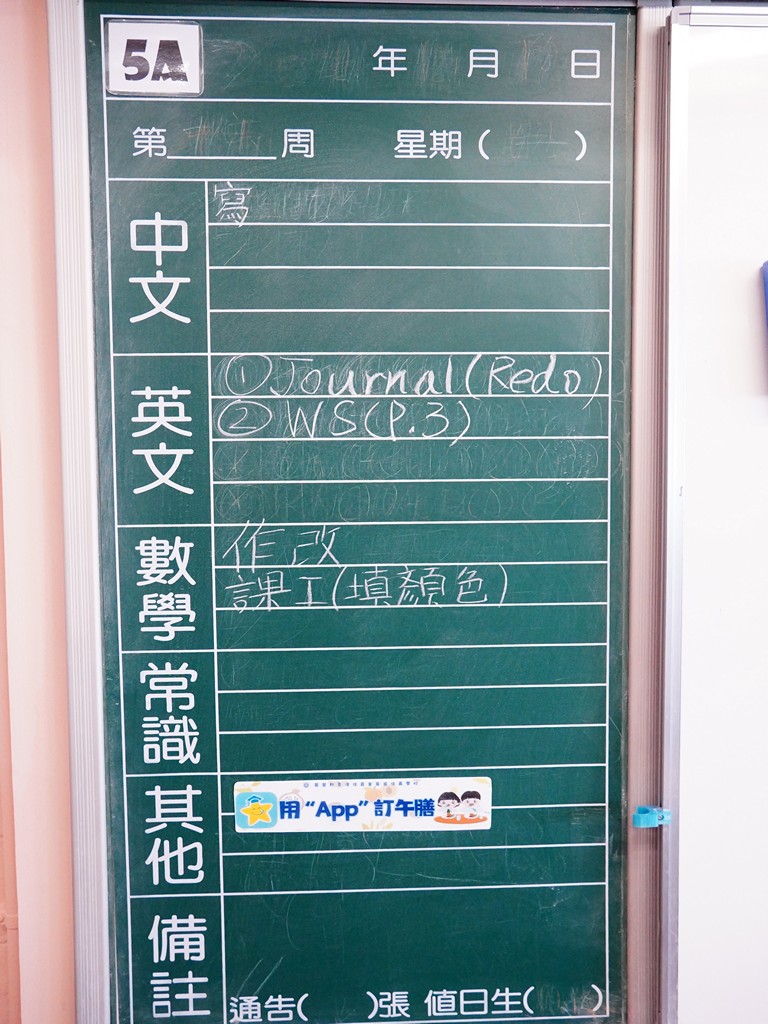 5A 年 月 日
第______周 星期( )
中文
寫
英文
①Journal(Redo)
② WS(P.3)
數學
作改
課工(填顏色)
常識
其他
用“App”訂午膳
備註
通告( )張 值日生( )